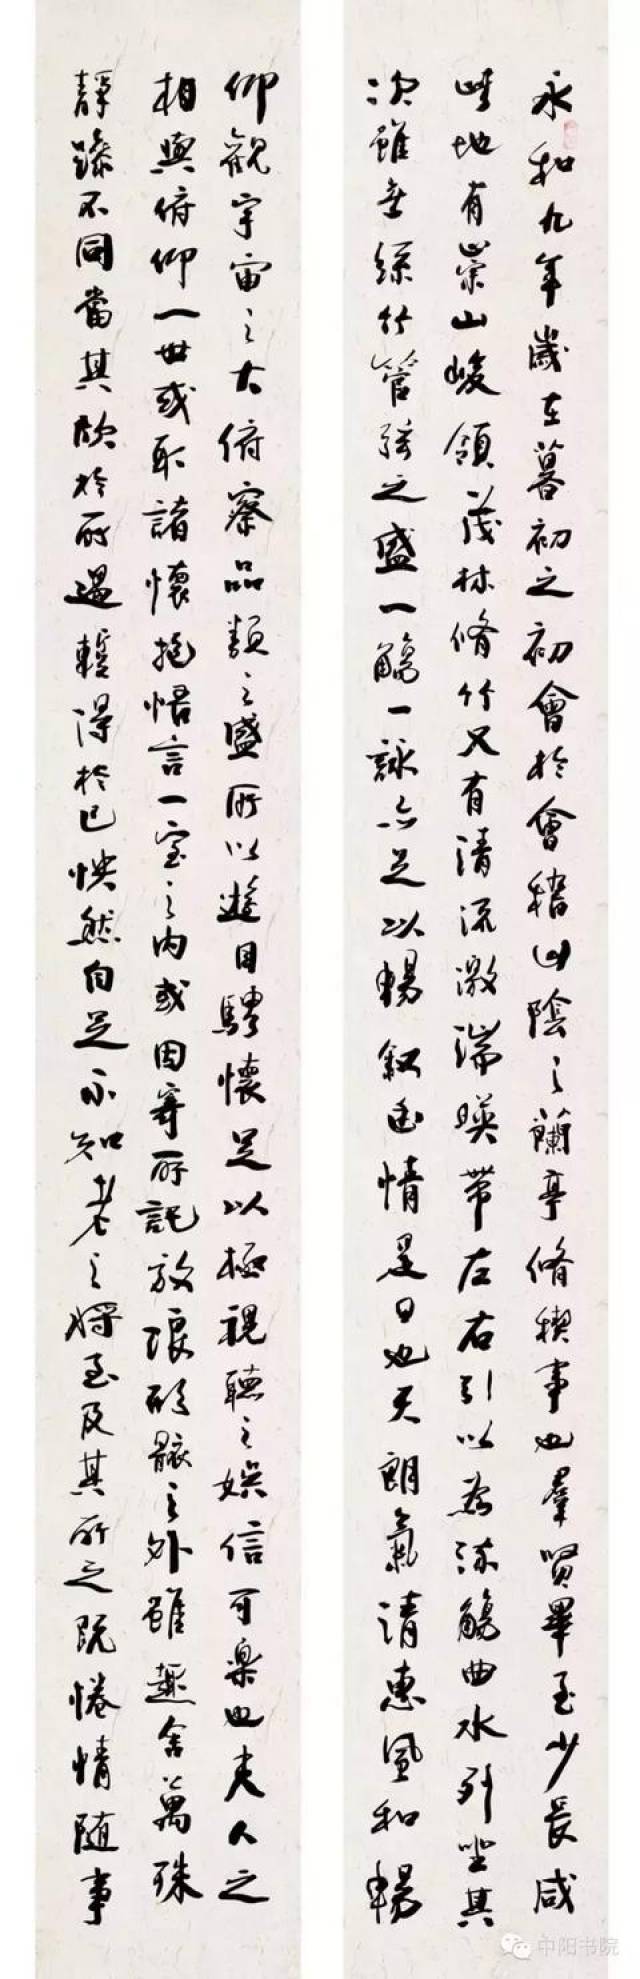 永和九年歲在暮初之初會於會稽山陰之蘭亭脩稧事也羣賢畢至少長咸
此地有崇山峻領茂林脩竹又有清流激湍暎帶左右引以為流觴曲水列坐其
次雖無絲竹管弦之盛一觴一詠亦足以暢敘幽情是日也天朗氣清惠風和暢
仰觀宇宙之大俯察品類之盛所以遊目騁懷足以極視聽之娛信可樂也夫人之
相與俯仰一世或取諸懷抱悟言一室之內或因寄所託放浪形骸之外雖趣舍萬殊
靜躁不同當其欣於所遇輒得於己怏然自足不知老之將至及其所之既惓情隨事
中阳书院